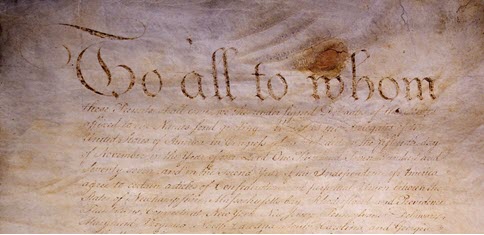 To all to whom
these Presents shall come, we the under signed Delegates of the States
affixed to our Names send greeting. Whereas the Delegates of the
United States of America in Congress assembled did on the fifteenth day
of November in the Year of our Lord One Thousand Seven Hundred and
Seventy seven, and in the Second Year of the Independence of America
agree to certain articles of Confederation and perpetual Union between the
States of Newhampshire, Massachusetts-bay, Rhodeisland and Providence
Plantations, Connecticut, New York, New Jersey, Pennsylvania, Delaware,
Maryland, Virginia, North Carolina, South Carolina and Georgia